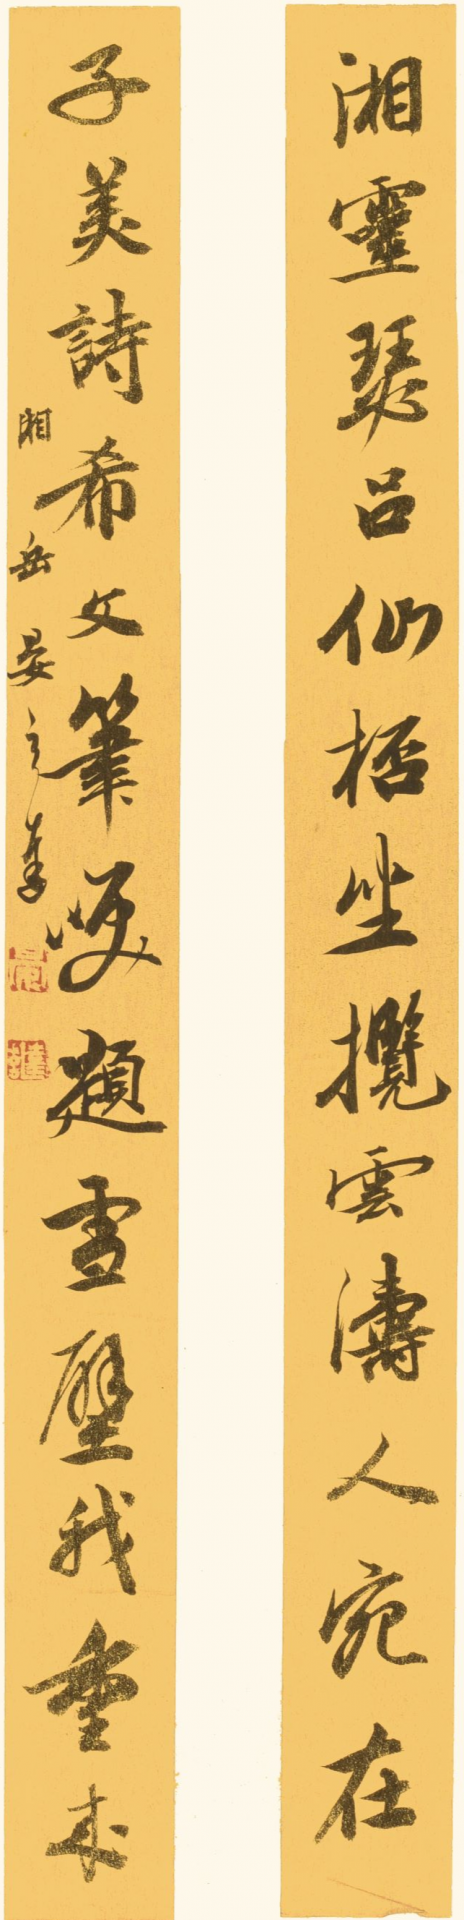 湘靈瑟呂仙梧坐攬雲濤人宛在
子美詩希文筆笑題雪壁我重來
湘岳晏之奉